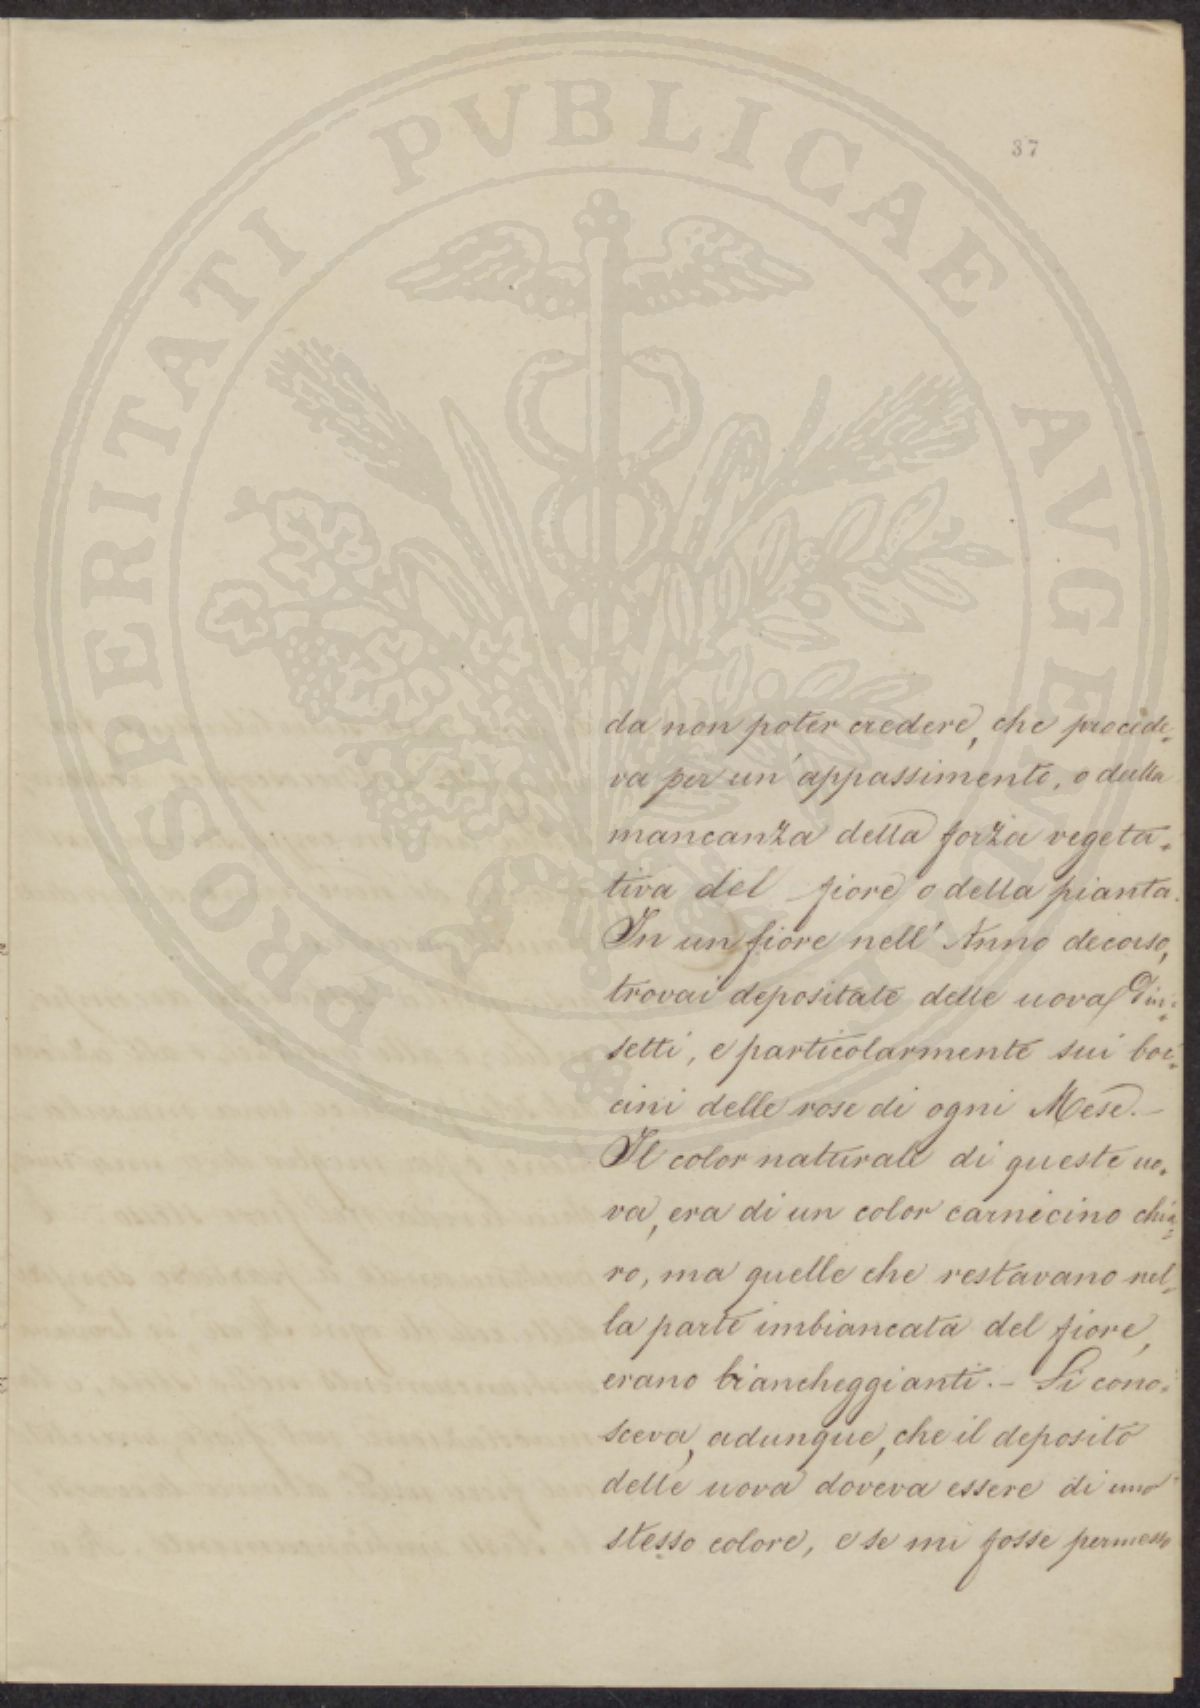 PROSPERITATI PVBLICAE AVGENDAE
37
da non poter credere, che procede=
va per un' appassimento, o dalla
mancanza della forza vegeta=
tiva del fiore o della pianta.
In un fiore nell' Anno decorso,
trovai depositate delle uova d'in=
setti, e particolarmente sui boc=
cini delle rose di ogni Mese.—
Il color naturale di queste uo=
va, era di un color carnicino chia=
ro, ma quelle che restavano nel=
la parte imbiancata del fiore,
erano biancheggianti.— Si cono=
sceva, adunque, che il deposito
delle uova doveva essere di uno
stesso colore, e se mi fosse permesso